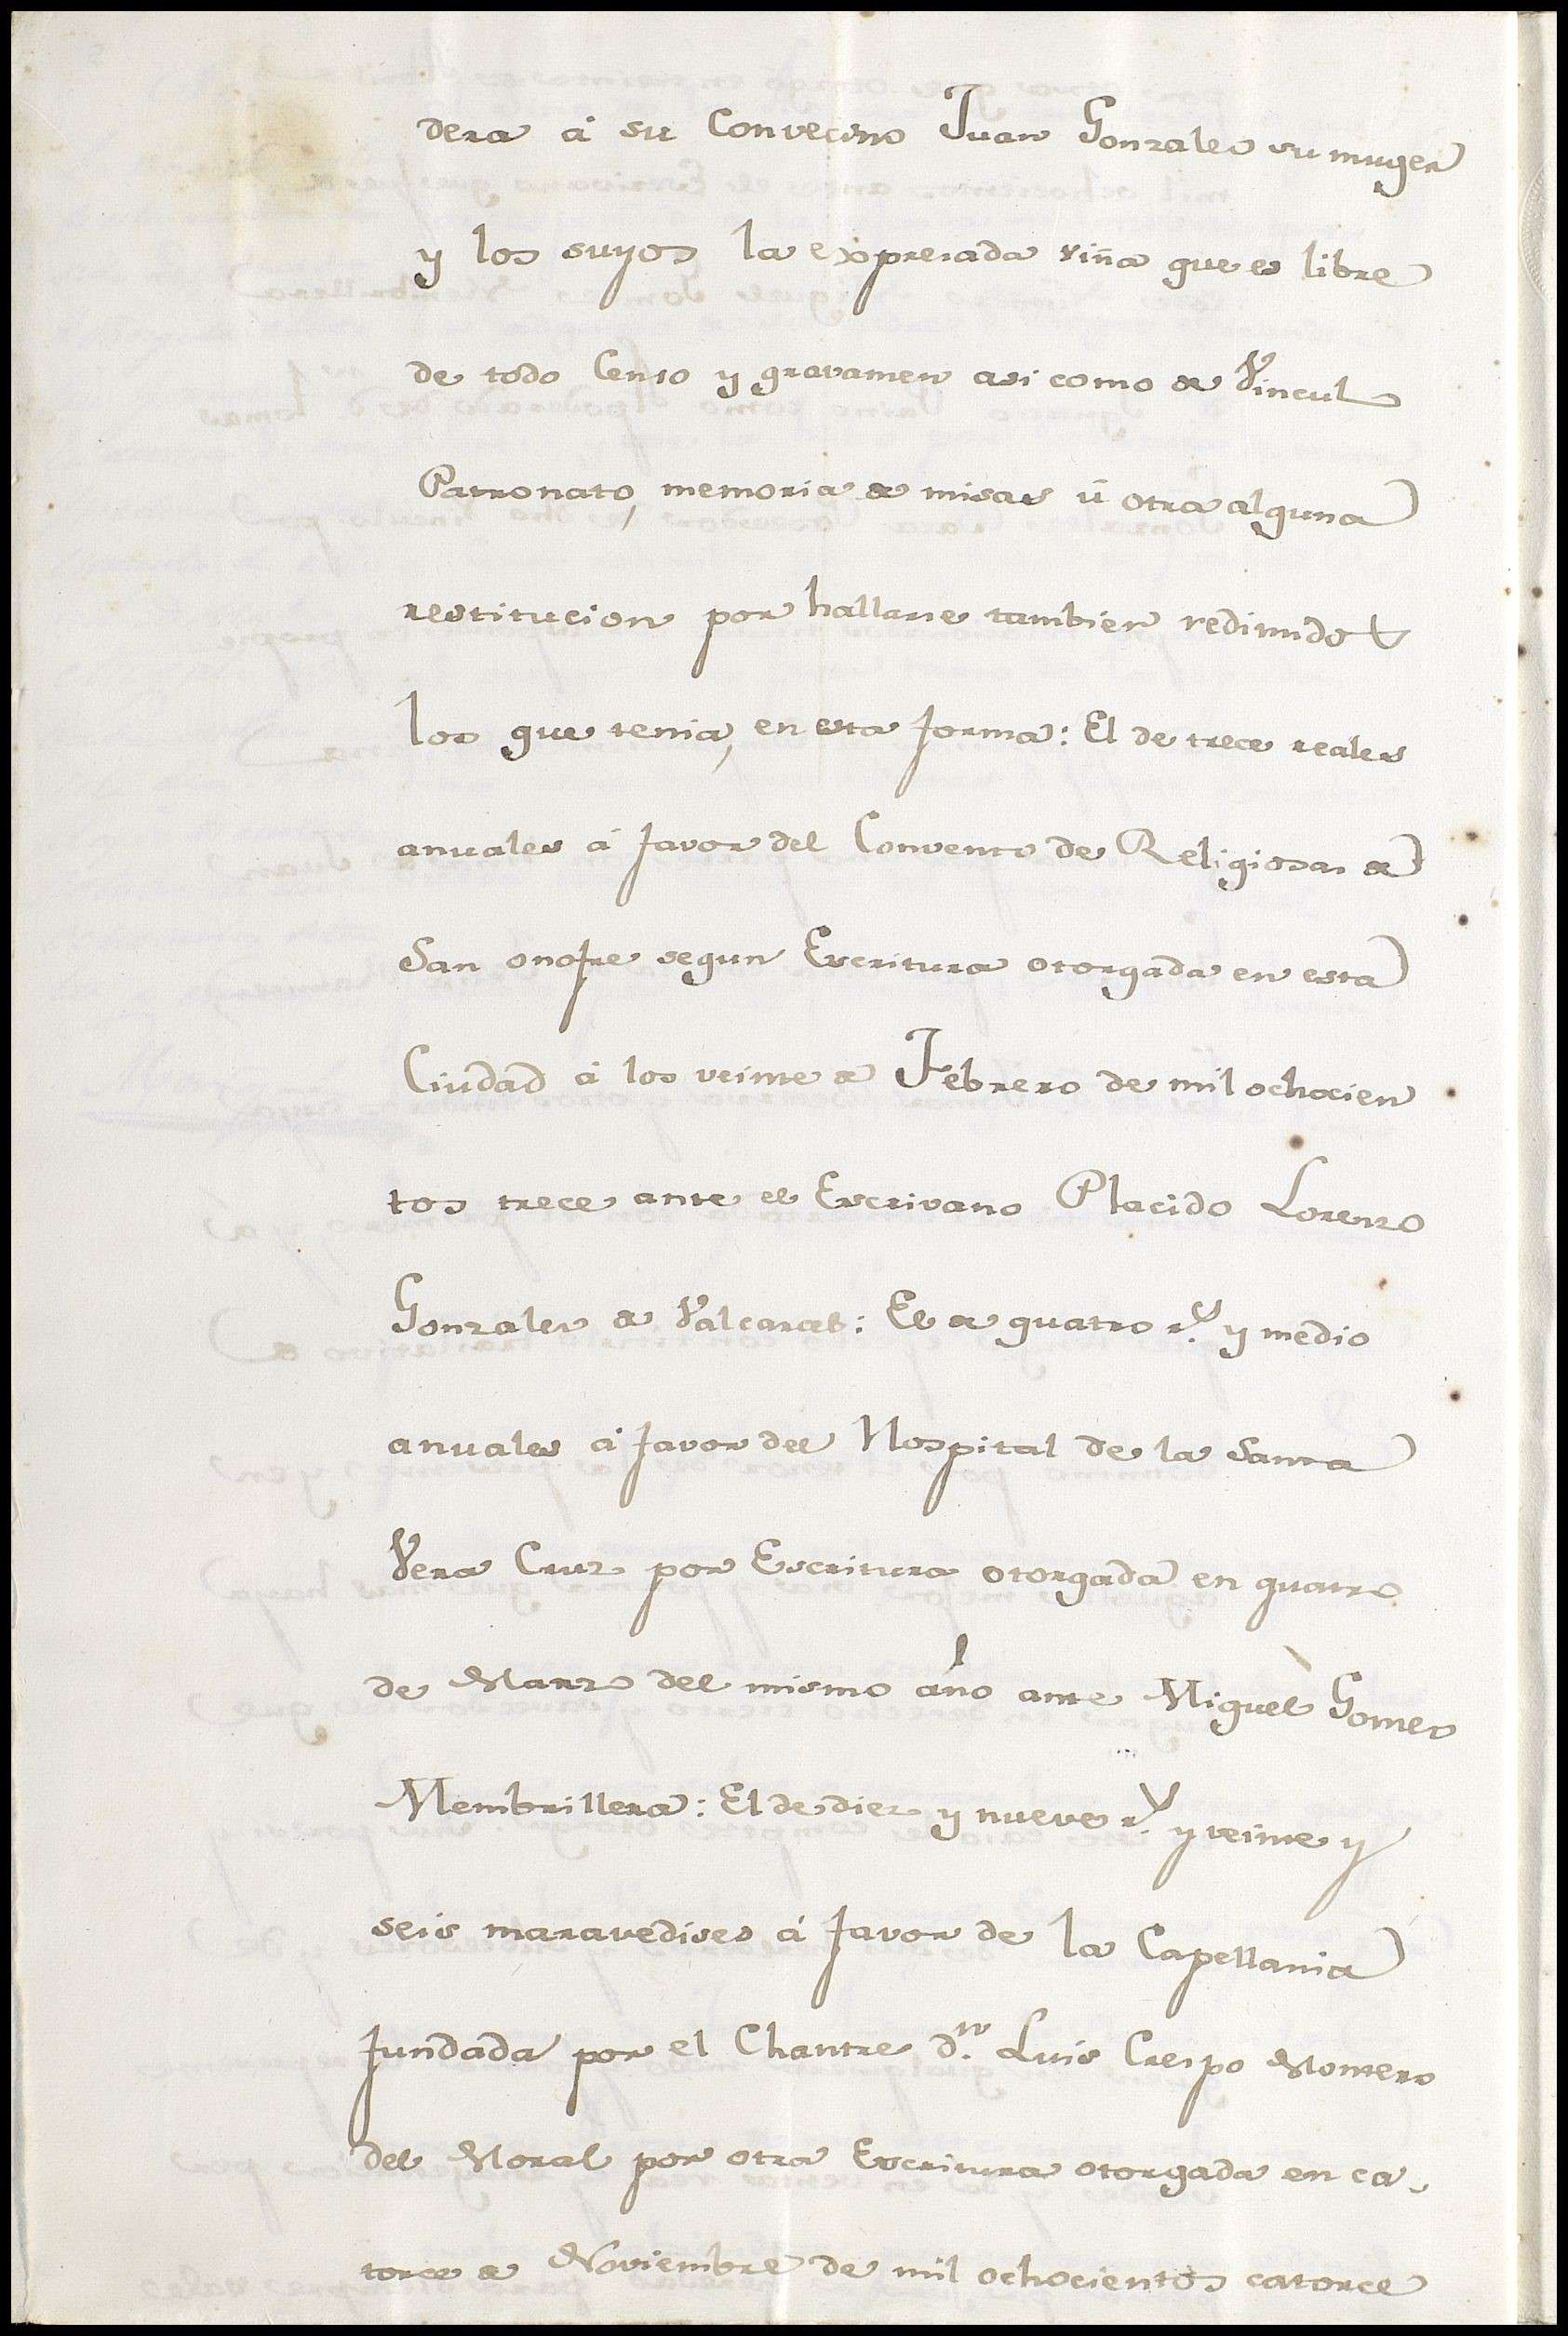 dera á su Convecino Juan Gonzales su muger
y los suyos la expresada viña que es libre
de todo Censo y gravamen asi como de Vincul
Patronato, memoria de misas ú otra alguna
restitucion por hallarse tambien redimido
los que tenia, en esta forma: El de trece reales
anuales á favor del Convento de Religiosas de
San onofre segun Escritura otorgada en esta
Ciudad á los veinte de Febrero de mil ochocien
tos trece ante el Escrivano Placido Lorenzo
Gonzales de Valcarcel: El de quatro r.s y medio
anuales á favor del Hospital de la Santa
Vera Cruz por Escritura otorgada en quatro
de Marzo del mismo año ante Miguel Gomes
Membrillera: El de diez y nueve r.s y veinte y
seis maravedises á favor de la Capellania
fundada por el Chantre d.n Luis Crespo Montero
del Moral por otra Escritura otorgada en ca-
torce de Noviembre de mil ochocientos catorce